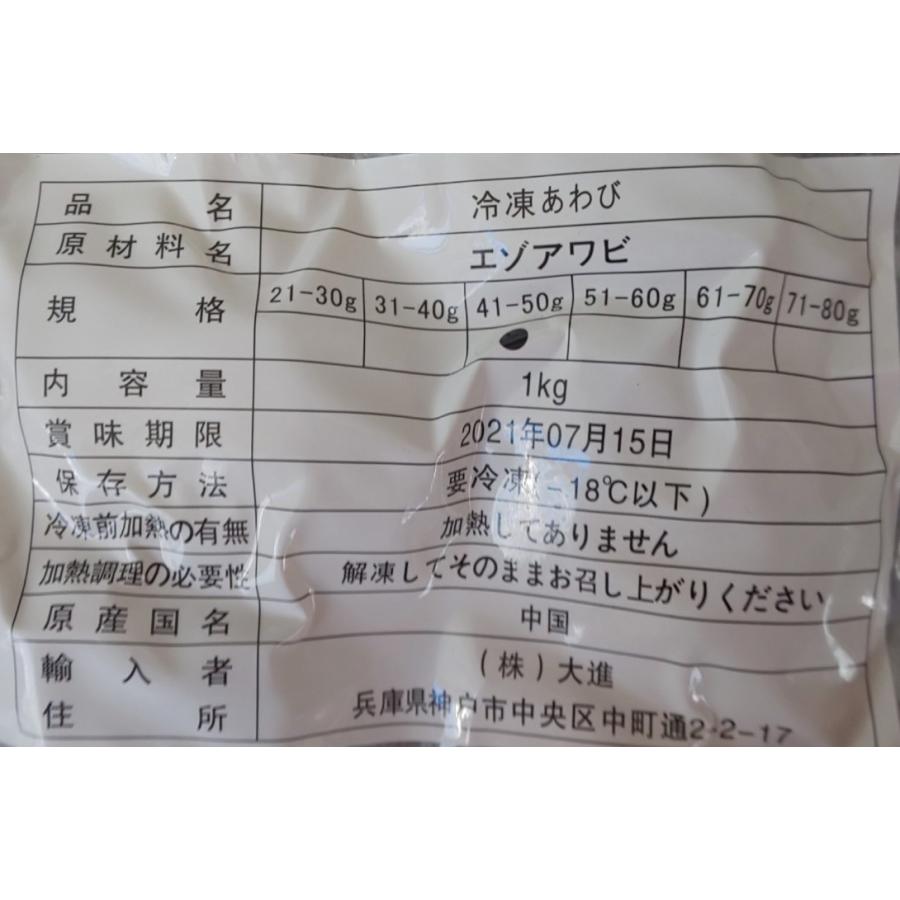 品名 冷凍あわび
原材料名 エゾアワビ
規格 21-30g 31-40g 41-50g 51-60g 61-70g 71-80g
内容量 1kg
賞味期限 2021年07月15日
保存方法 要冷凍(-18℃以下)
冷凍前加熱の有無 加熱してありません
加熱調理の必要性 解凍してそのままお召し上がりください
原産国名 中国
輸入者 (株)大進
住所 兵庫県神戸市中央区中町通2-2-17